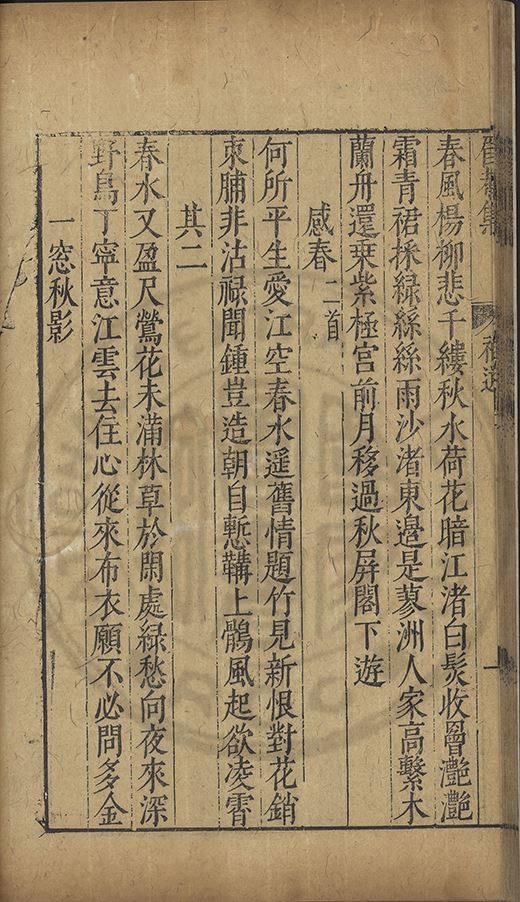 春風楊柳悲千縷秋水荷花暗江渚白髮收罾灔灔
霜青裙採緑絲絲雨沙渚東邊是蓼洲人家高繫木
蘭舟還乘紫極宮前月移過秋屏閣下遊
感春二首
何所平生愛江空春水遥舊情題竹見新恨對花銷
束脯非沽禄聞鍾豈造朝自慙鞲上鶻風起欲凌霄
其二
春水又盈尺鶯花未滿林草於閑處緑愁向夜來深
野鳥丁寧意江雲去住心從來布衣願不必問多金
一窓秋影